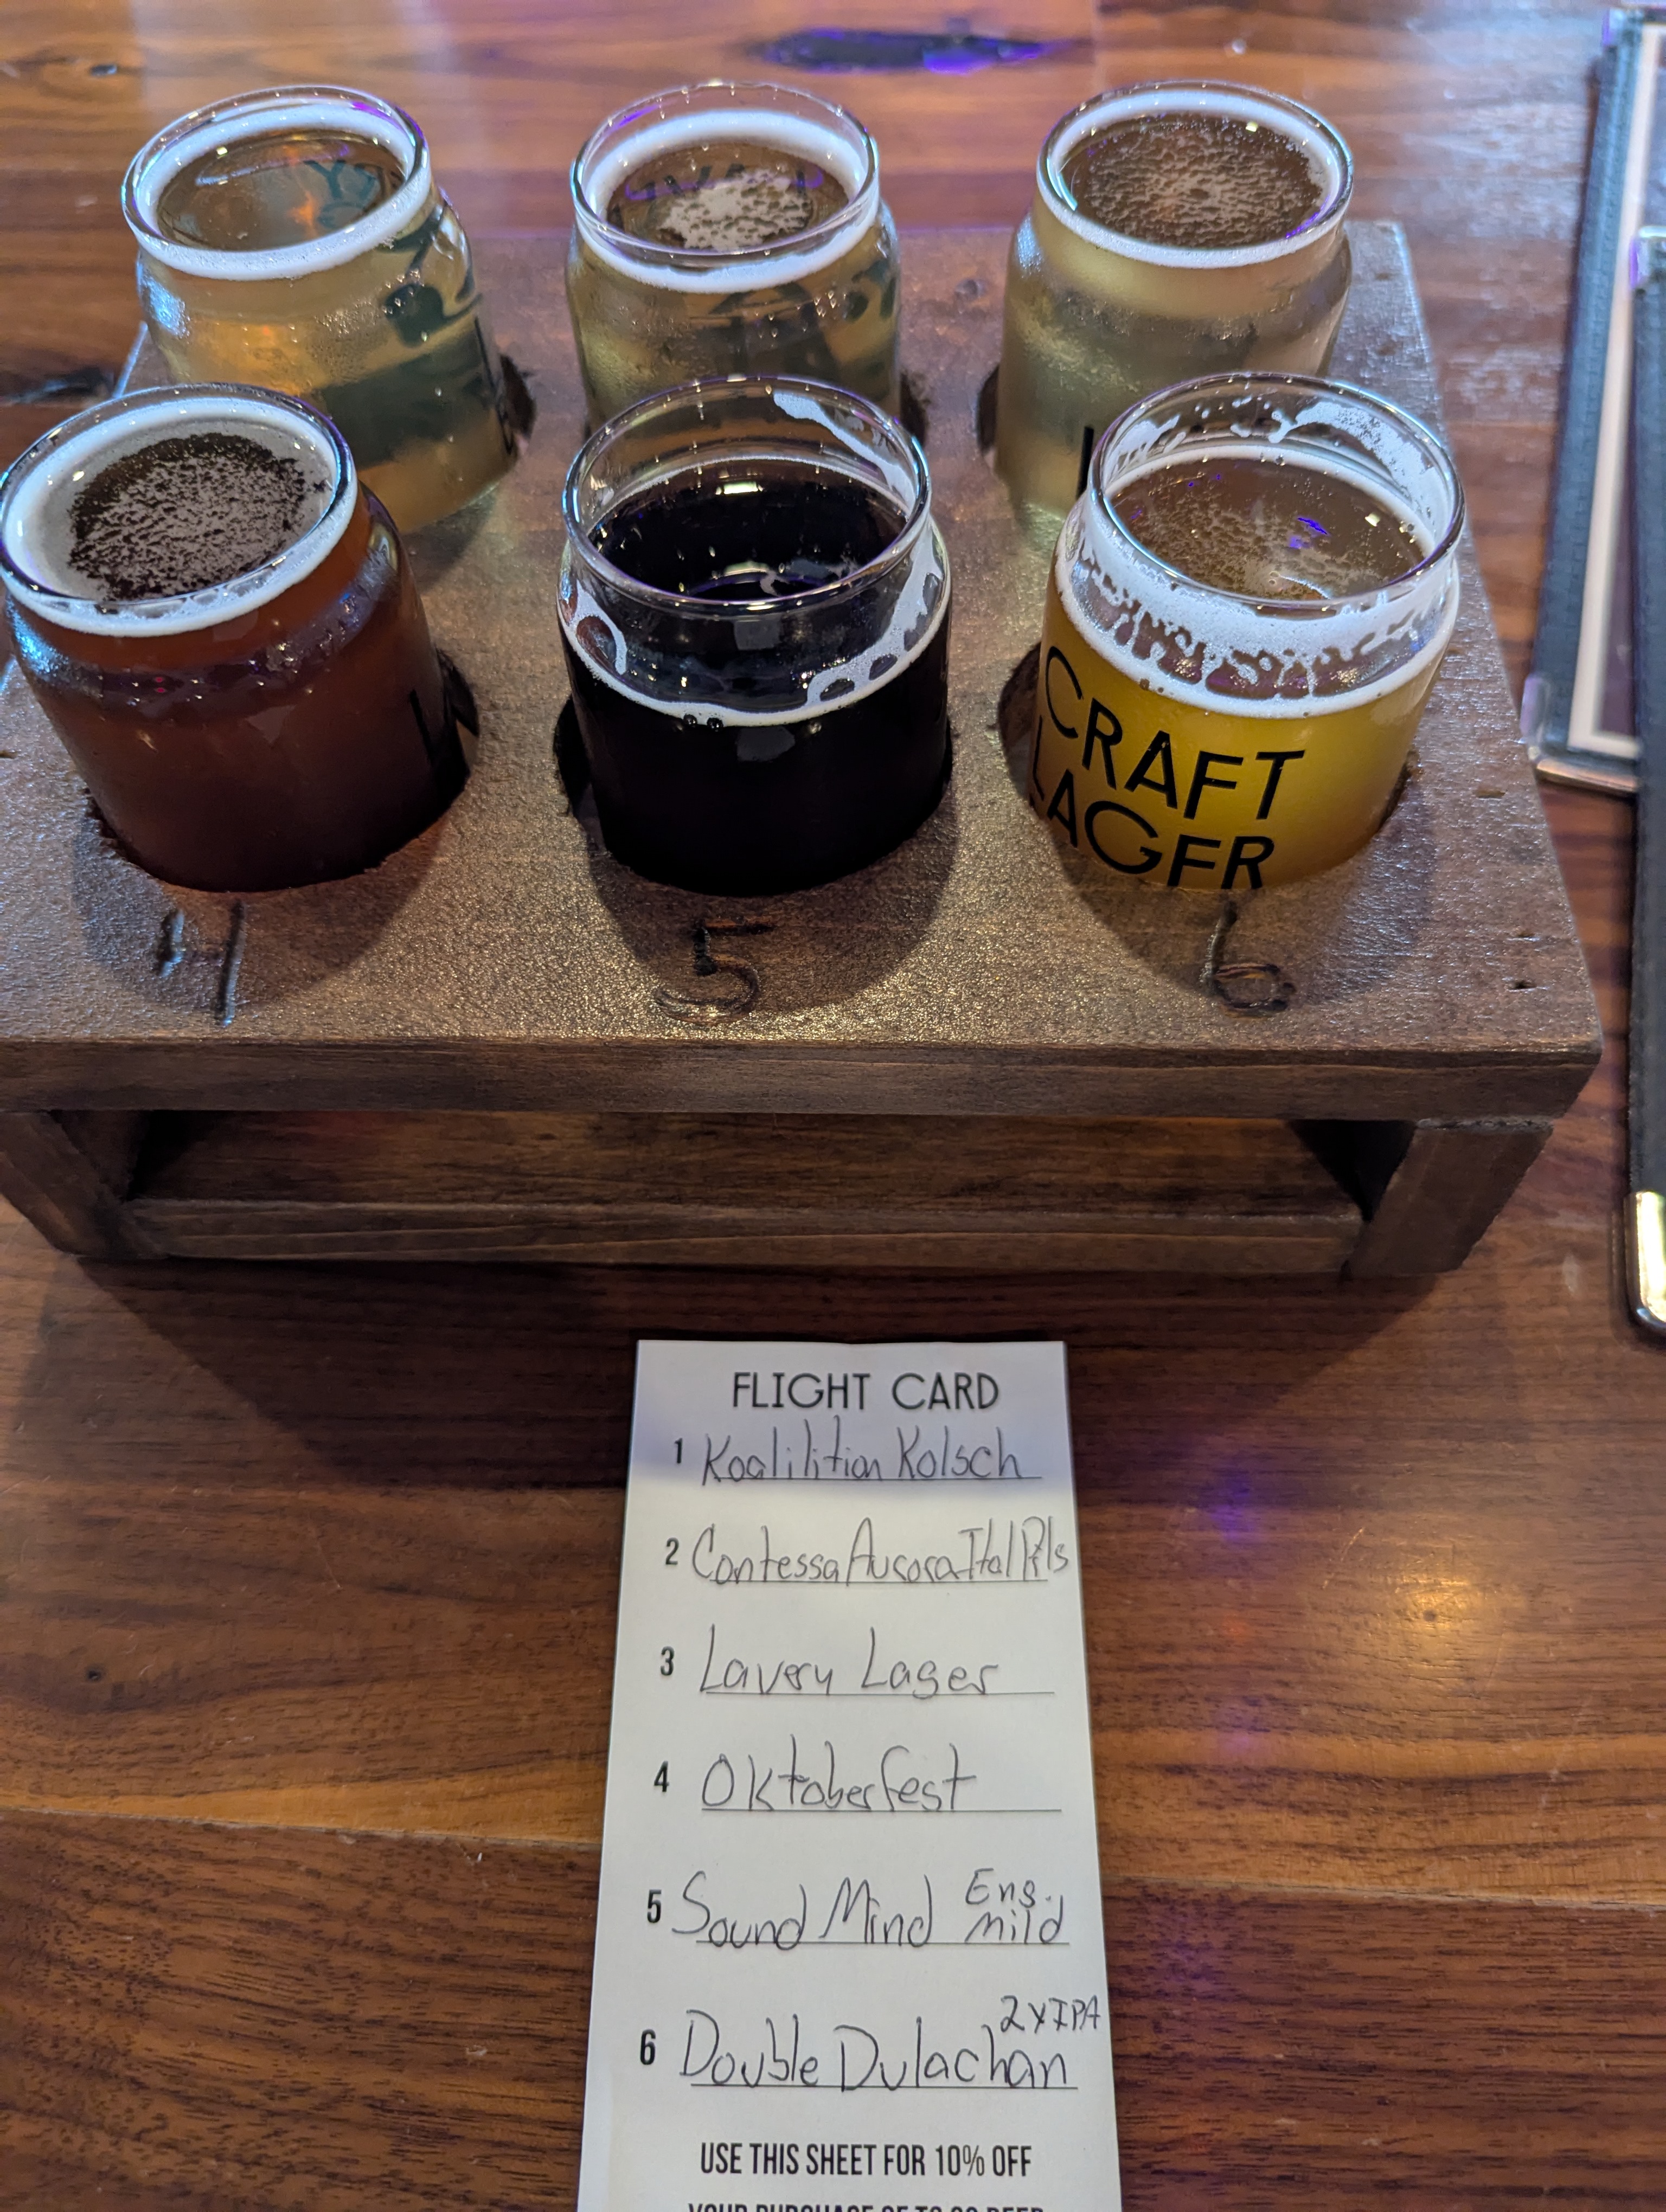 CRAFT
LAGER
4
5
6
FLIGHT CARD
1 Koalilition Kolsch
2 Contessa Aurora Ital Pils
3 Lavery Lager
4 Oktoberfest
5 Sound Mind Eng. mild
2xIPA
6 Double Dulachan
USE THIS SHEET FOR 10% OFF
YOUR PURCHASE OF TO GO BEER